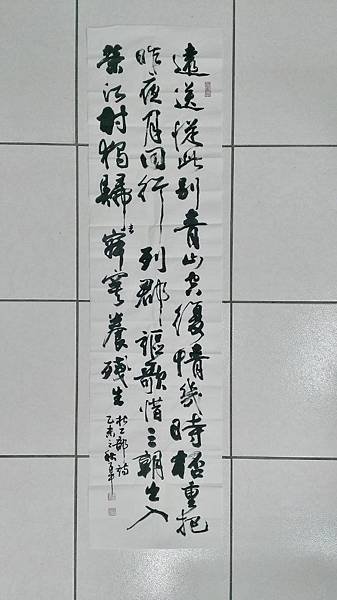 遠送從此別青山空復情幾時桮重把
昨夜月同行列郡謳歌惜三朝出入
榮江村獨歸寂寞養殘生
杜工部詩
乙未之秋